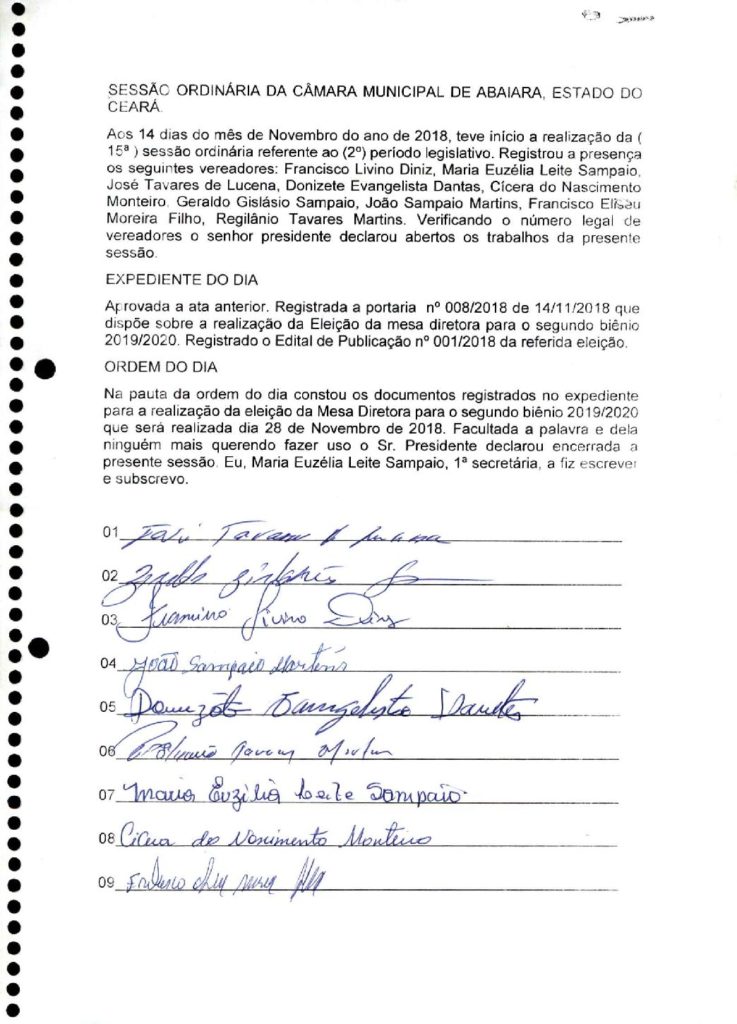 SESSÃO ORDINÁRIA DA CÂMARA MUNICIPAL DE ABAIARA, ESTADO DO
CEARÁ.
Aos 14 dias do mês de Novembro do ano de 2018, teve início a realização da (
15ª ) sessão ordinária referente ao (2º) período legislativo. Registrou a presença
os seguintes vereadores: Francisco Livino Diniz, Maria Euzélia Leite Sampaio,
José Tavares de Lucena, Donizete Evangelista Dantas, Cícera do Nascimento
Monteiro, Geraldo Gislásio Sampaio, João Sampaio Martins, Francisco Eliseu
Moreira Filho, Regilânio Tavares Martins. Verificando o número legal de
vereadores o senhor presidente declarou abertos os trabalhos da presente
sessão.
EXPEDIENTE DO DIA
Aprovada a ata anterior. Registrada a portaria nº 008/2018 de 14/11/2018 que
dispõe sobre a realização da Eleição da mesa diretora para o segundo biênio
2019/2020. Registrado o Edital de Publicação nº 001/2018 da referida eleição.
ORDEM DO DIA
Na pauta da ordem do dia constou os documentos registrados no expediente
para a realização da eleição da Mesa Diretora para o segundo biênio 2019/2020
que será realizada dia 28 de Novembro de 2018. Facultada a palavra e dela
ninguém mais querendo fazer uso o Sr. Presidente declarou encerrada a
presente sessão. Eu, Maria Euzélia Leite Sampaio, 1ª secretária, a fiz escrever
e subscrevo.
01
02
03 Livino Diniz
04 João Sampaio Martins
05 Donizete Evangelista Dantas
06
07 Maria Euzélia Leite Sampaio
08 Cícera do Nascimento Monteiro
09